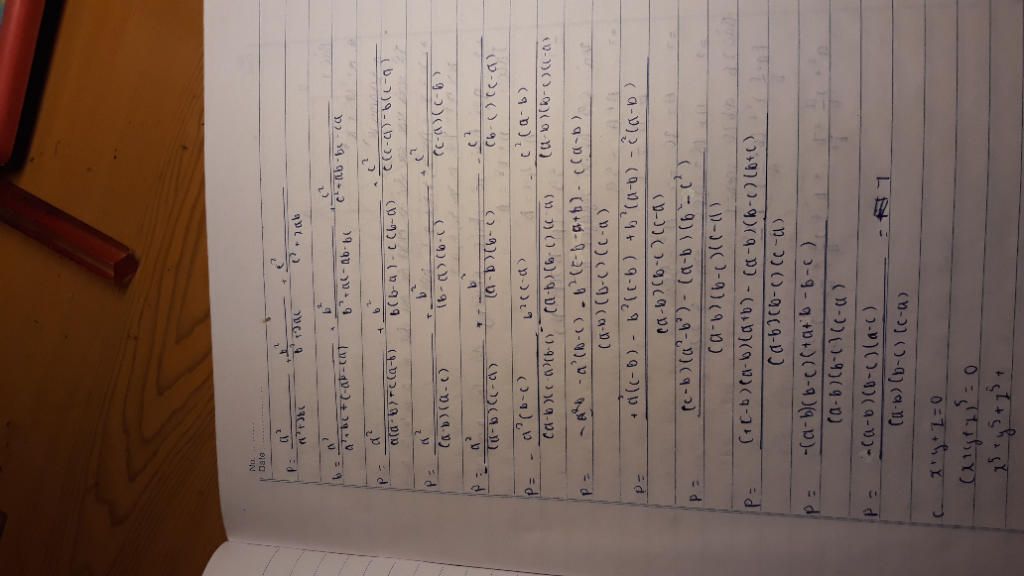 No.
Date
P = a²/(a²+2bc) + b²/(b²+2ac) + c²/(c²+2ab)
b = a²/(a²+bc+(-ab-ca)) + b²/(b²+ac-ab-bc) + c²/(c²+ab-bc-ca)
P = a²/(a(a-b)+c(a-b)) + b²/(b(b-a)-c(b-a)) + c²/(c(c-a)-b(c-a))
P = a²/((a-b)(a-c)) + b²/((b-a)(b-c)) + c²/((c-a)(c-b))
P = - a²/((a-b)(c-a)) - b²/((a-b)(b-c)) - c²/((b-c)(c-a))
P = - a²(b-c)/((a-b)(c-a)(b-c)) - b²(c-a)/((a-b)(b-c)(c-a)) - c²(a-b)/((a-b)(b-c)(c-a))
P = -a²(b-c) - b²(c-b-a+b) - c(a-b)/(a-b)(b-c)(c-a)
P = +a²(c-b) - b²(c-b) + b²(a-b) - c²(a-b)/(a-b)(b-c)(c-a)
P = (c-b)(a²-b²) - (a-b)(b²-c²)/(a-b)(b-c)(c-a)
P = (+c-b)(a-b)(a+b) - (a-b)(b-c)(b+c)/(a-b)(b-c)(c-a)
P = -(a-b)(b-c)(+a+b-b-c)/(a-b)(b-c)(c-a)
P = -(a-b)(b-c)(a-c)/(a-b)(b-c)(c-a) = 1
C x+y+z=0
(x+y+z)⁵=0
x⁵+y⁵+z⁵+